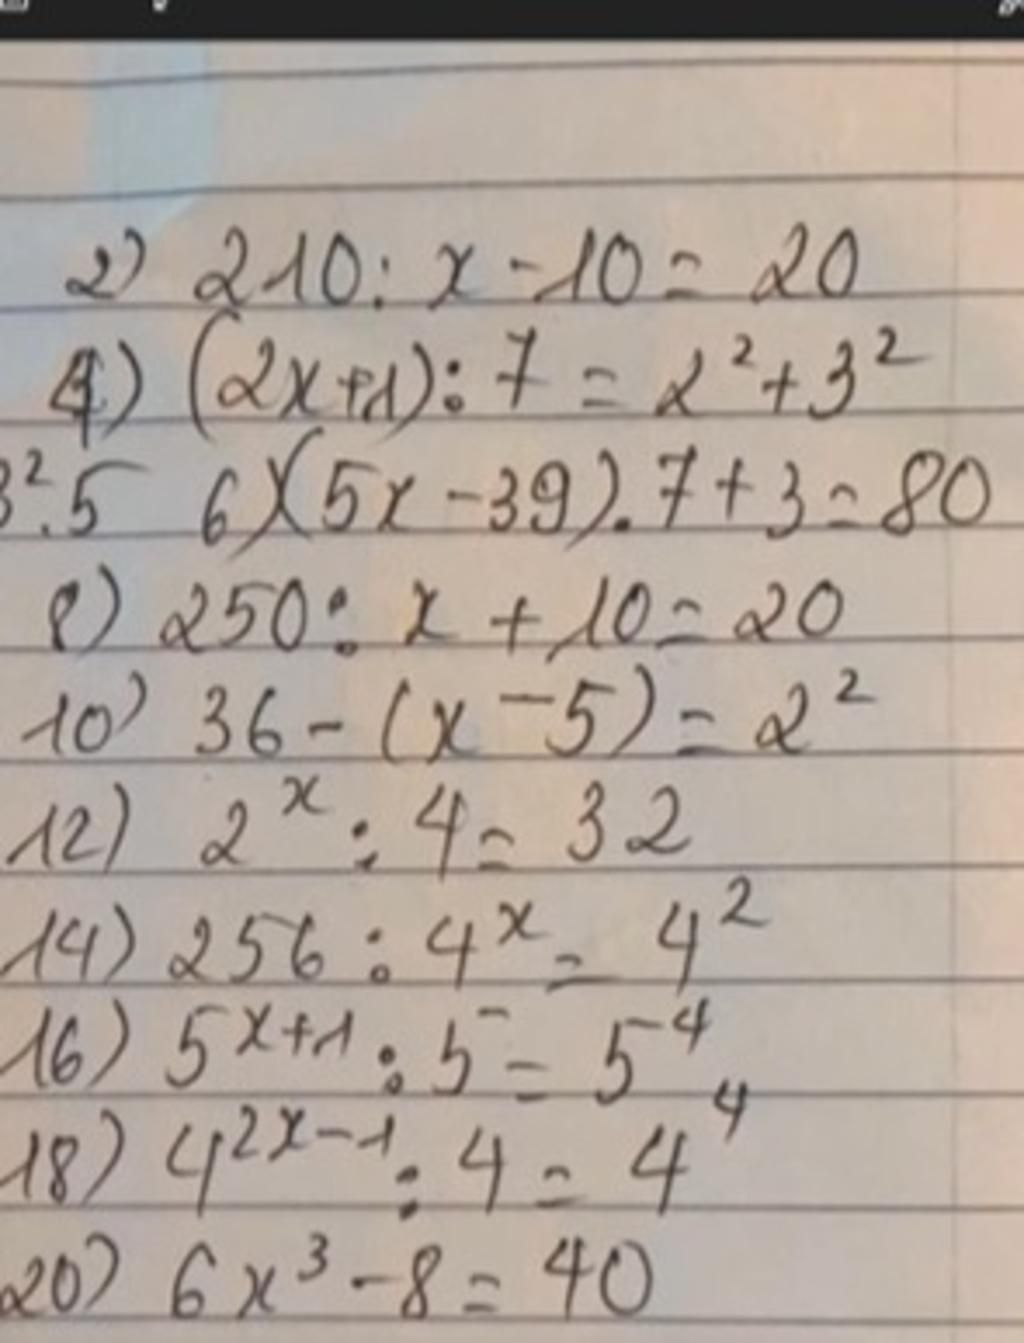 2) 210 : x - 10 = 20
4) (2x+1) : 7 = 2² + 3²
3².5 6) (5x - 39).7 + 3 = 80
8) 250 : x + 10 = 20
10) 36 - (x - 5) = 2²
12) 2ˣ : 4 = 32
14) 256 : 4ˣ = 4²
16) 5ˣ⁺¹ : 5 = 5⁴
18) 4²ˣ⁻¹ : 4 = 4⁴
20) 6x³ - 8 = 40